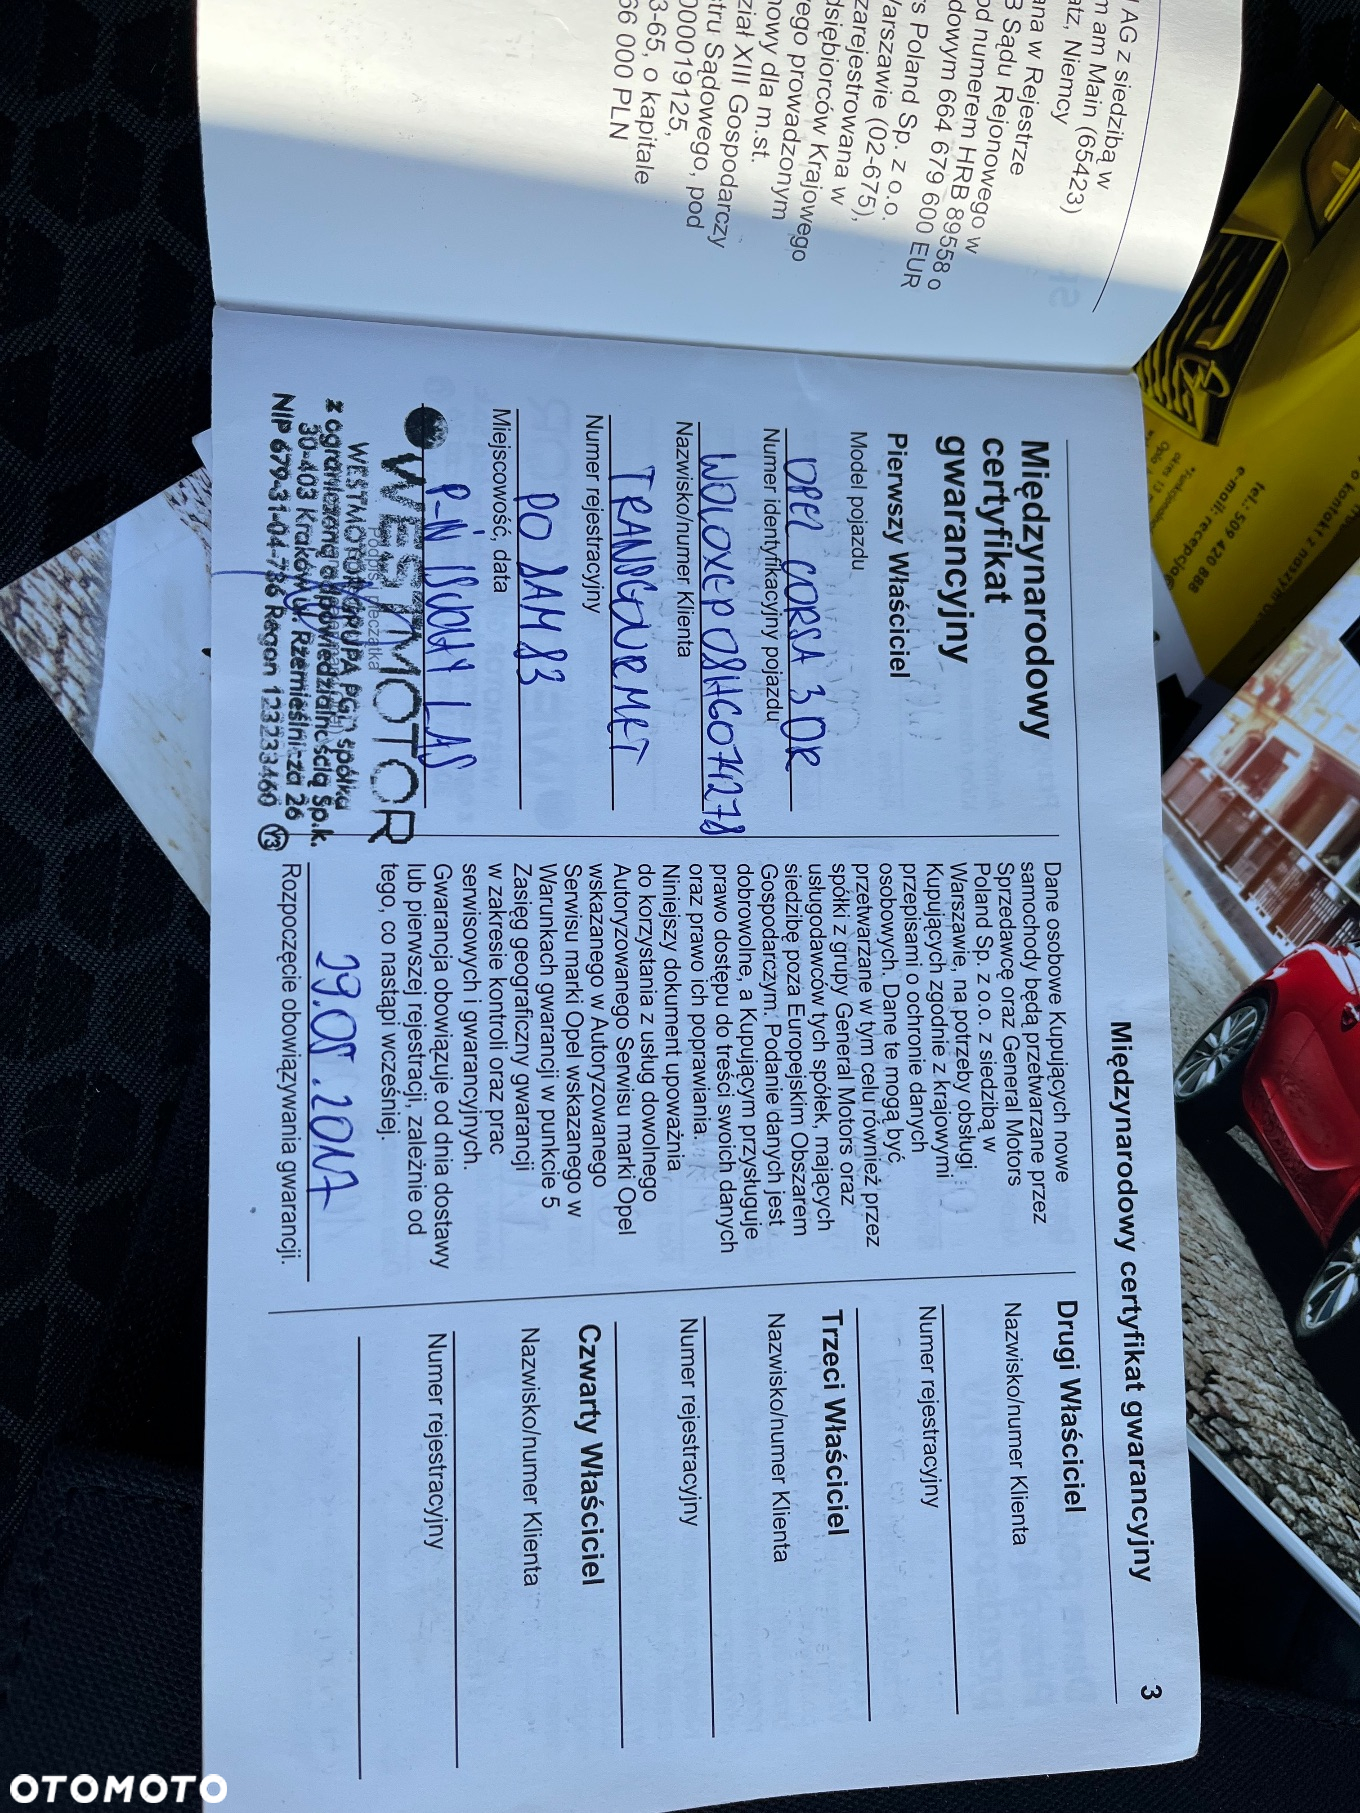 AG z siedzibą w
m am Main (65423)
atz, Niemcy
ana w Rejestrze
B Sądu Rejonowego w
od numerem HRB 89558 o
dowym 664 679 600 EUR
rs Poland Sp. z o.o.
Warszawie (02-675),
zarejestrowana w
dsiębiorców Krajowego
ego prowadzonym
owy dla m.st.
ział XIII Gospodarczy
tru Sądowego, pod
0000019125,
3-65, o kapitale
66 000 PLN
Międzynarodowy certyfikat gwarancyjny 3
Międzynarodowy
certyfikat
gwarancyjny
Pierwszy Właściciel
Model pojazdu
OPEL CORSA 3DR
Numer identyfikacyjny pojazdu
W0L0XEP08H6071278
Nazwisko/numer Klienta
TRANSGOURMET
Numer rejestracyjny
PO 2AM83
Miejscowość, data
Podpis i pieczątka
WESTMOTOR
WESTMOTOR GRUPA PGD spółka
z ograniczoną odpowiedzialnością Sp.k.
30-403 Kraków, ul. Rzemieślnicza 26
NIP 679-31-04-736 Regon 123233460 V3
Dane osobowe Kupujących nowe
samochody będą przetwarzane przez
Sprzedawcę oraz General Motors
Poland Sp. z o.o. z siedzibą w
Warszawie, na potrzeby obsługi
Kupujących zgodnie z krajowymi
przepisami o ochronie danych
osobowych. Dane te mogą być
przetwarzane w tym celu również przez
spółki z grupy General Motors oraz
usługodawców tych spółek, mających
siedzibę poza Europejskim Obszarem
Gospodarczym. Podanie danych jest
dobrowolne, a Kupującym przysługuje
prawo dostępu do treści swoich danych
oraz prawo ich poprawiania.
Niniejszy dokument upoważnia
do korzystania z usług dowolnego
Autoryzowanego Serwisu marki Opel
wskazanego w Autoryzowanego
Serwisu marki Opel wskazanego w
Warunkach gwarancji w punkcie 5
Zasięg geograficzny gwarancji
w zakresie kontroli oraz prac
serwisowych i gwarancyjnych.
Gwarancja obowiązuje od dnia dostawy
lub pierwszej rejestracji, zależnie od
tego, co nastąpi wcześniej.
29.05.2017
Rozpoczęcie obowiązywania gwarancji.
Drugi Właściciel
Nazwisko/numer Klienta
Numer rejestracyjny
Trzeci Właściciel
Nazwisko/numer Klienta
Numer rejestracyjny
Czwarty Właściciel
Nazwisko/numer Klienta
Numer rejestracyjny
tel.: 509 420 888
e-mail: recepcja@
OTOMOTO